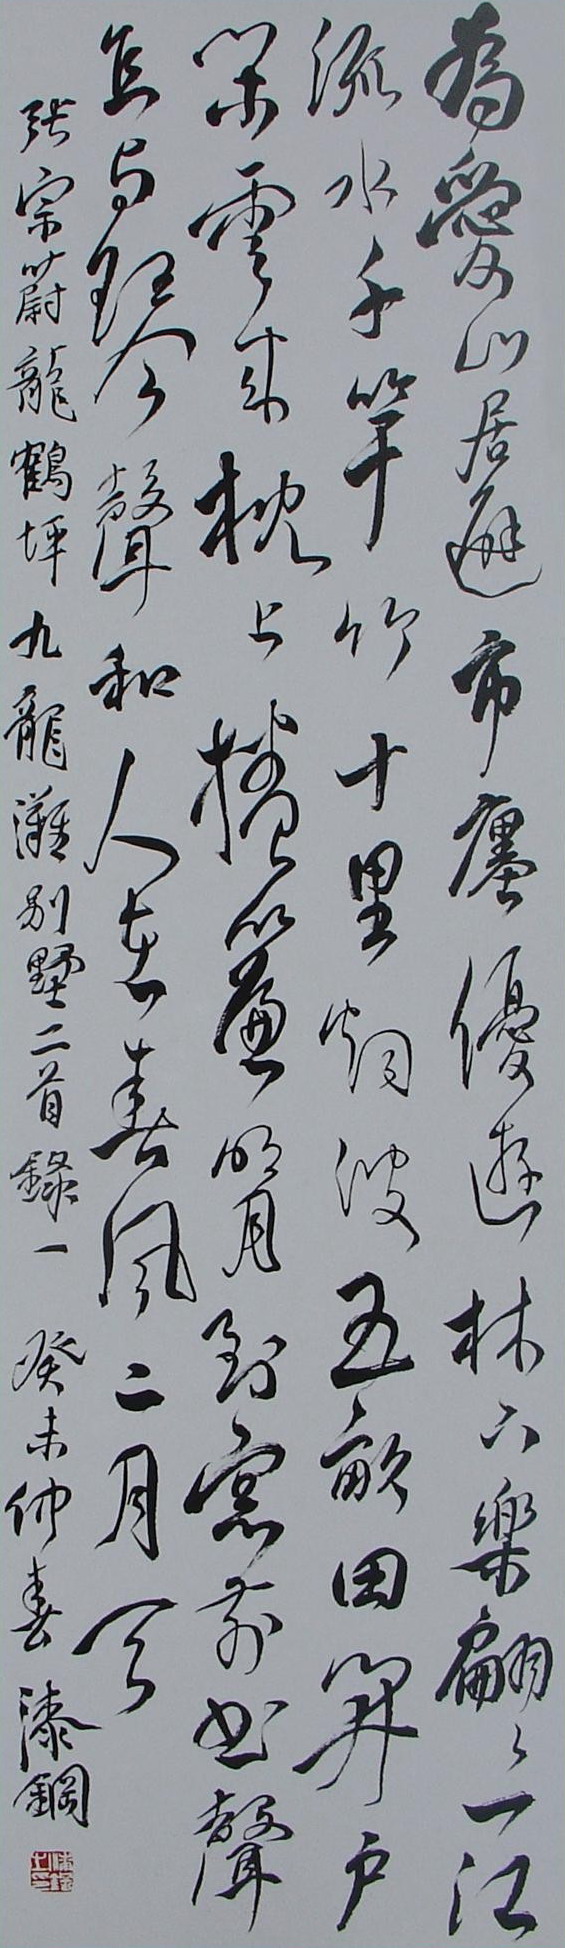 為愛山居避市廛優遊林下樂翩々一江
流水千竿竹十里烟波五畝田開戶
閑雲來枕上捲簾明月到窗前書聲
与琴聲和人在春風二月天
張宗蔚龍鶴坪九龍灘別墅二首錄一 癸未仲春漆鋼